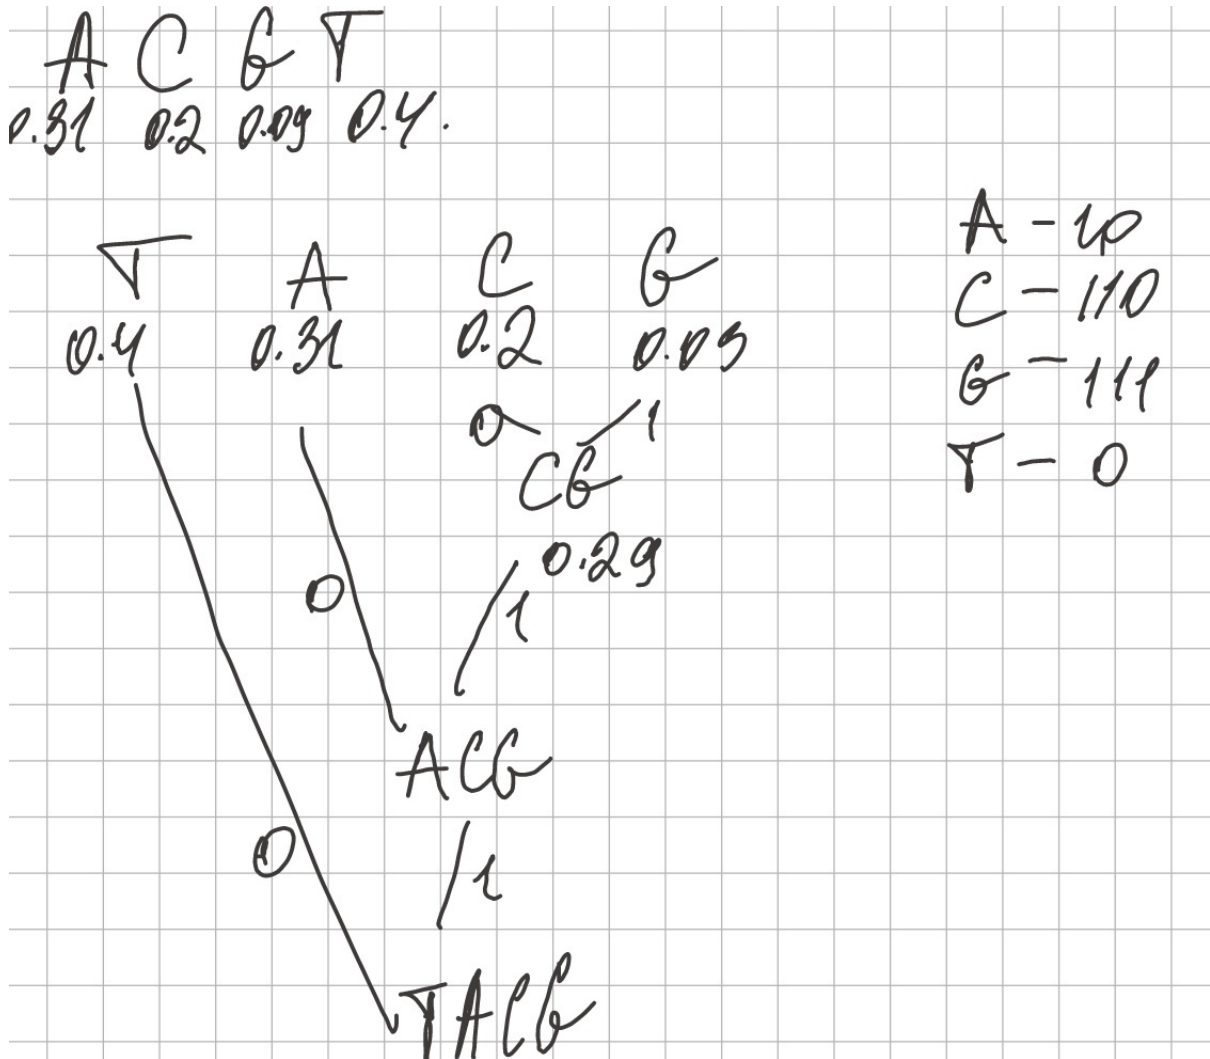 A C G T
0.31 0.2 0.09 0.4.
T A C G
0.4 0.31 0.2 0.09
0 1
CG
0.29
0 1
ACG
0 1
TACG
A - 10
C - 110
G - 111
T - 0